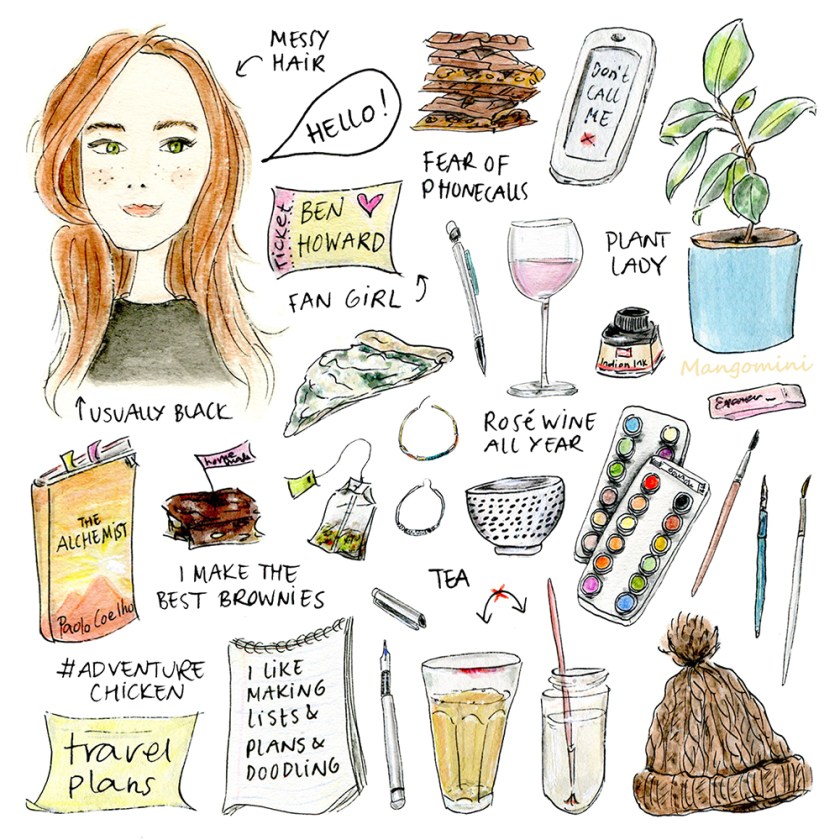 MESSY
HAIR
HELLO!
Don't
CALL
ME
FEAR OF
PHONECALLS
TICKET
BEN
HOWARD
FAN GIRL
PLANT
LADY
Indian Ink
Mangomini
USUALLY BLACK
ROSÉ WINE
ALL YEAR
THE
ALCHEMIST
Paolo Coelho
home
made
I MAKE THE
BEST BROWNIES
TEA
#ADVENTURE
CHICKEN
travel
plans
I LIKE
MAKING
LISTS &
PLANS &
DOODLING